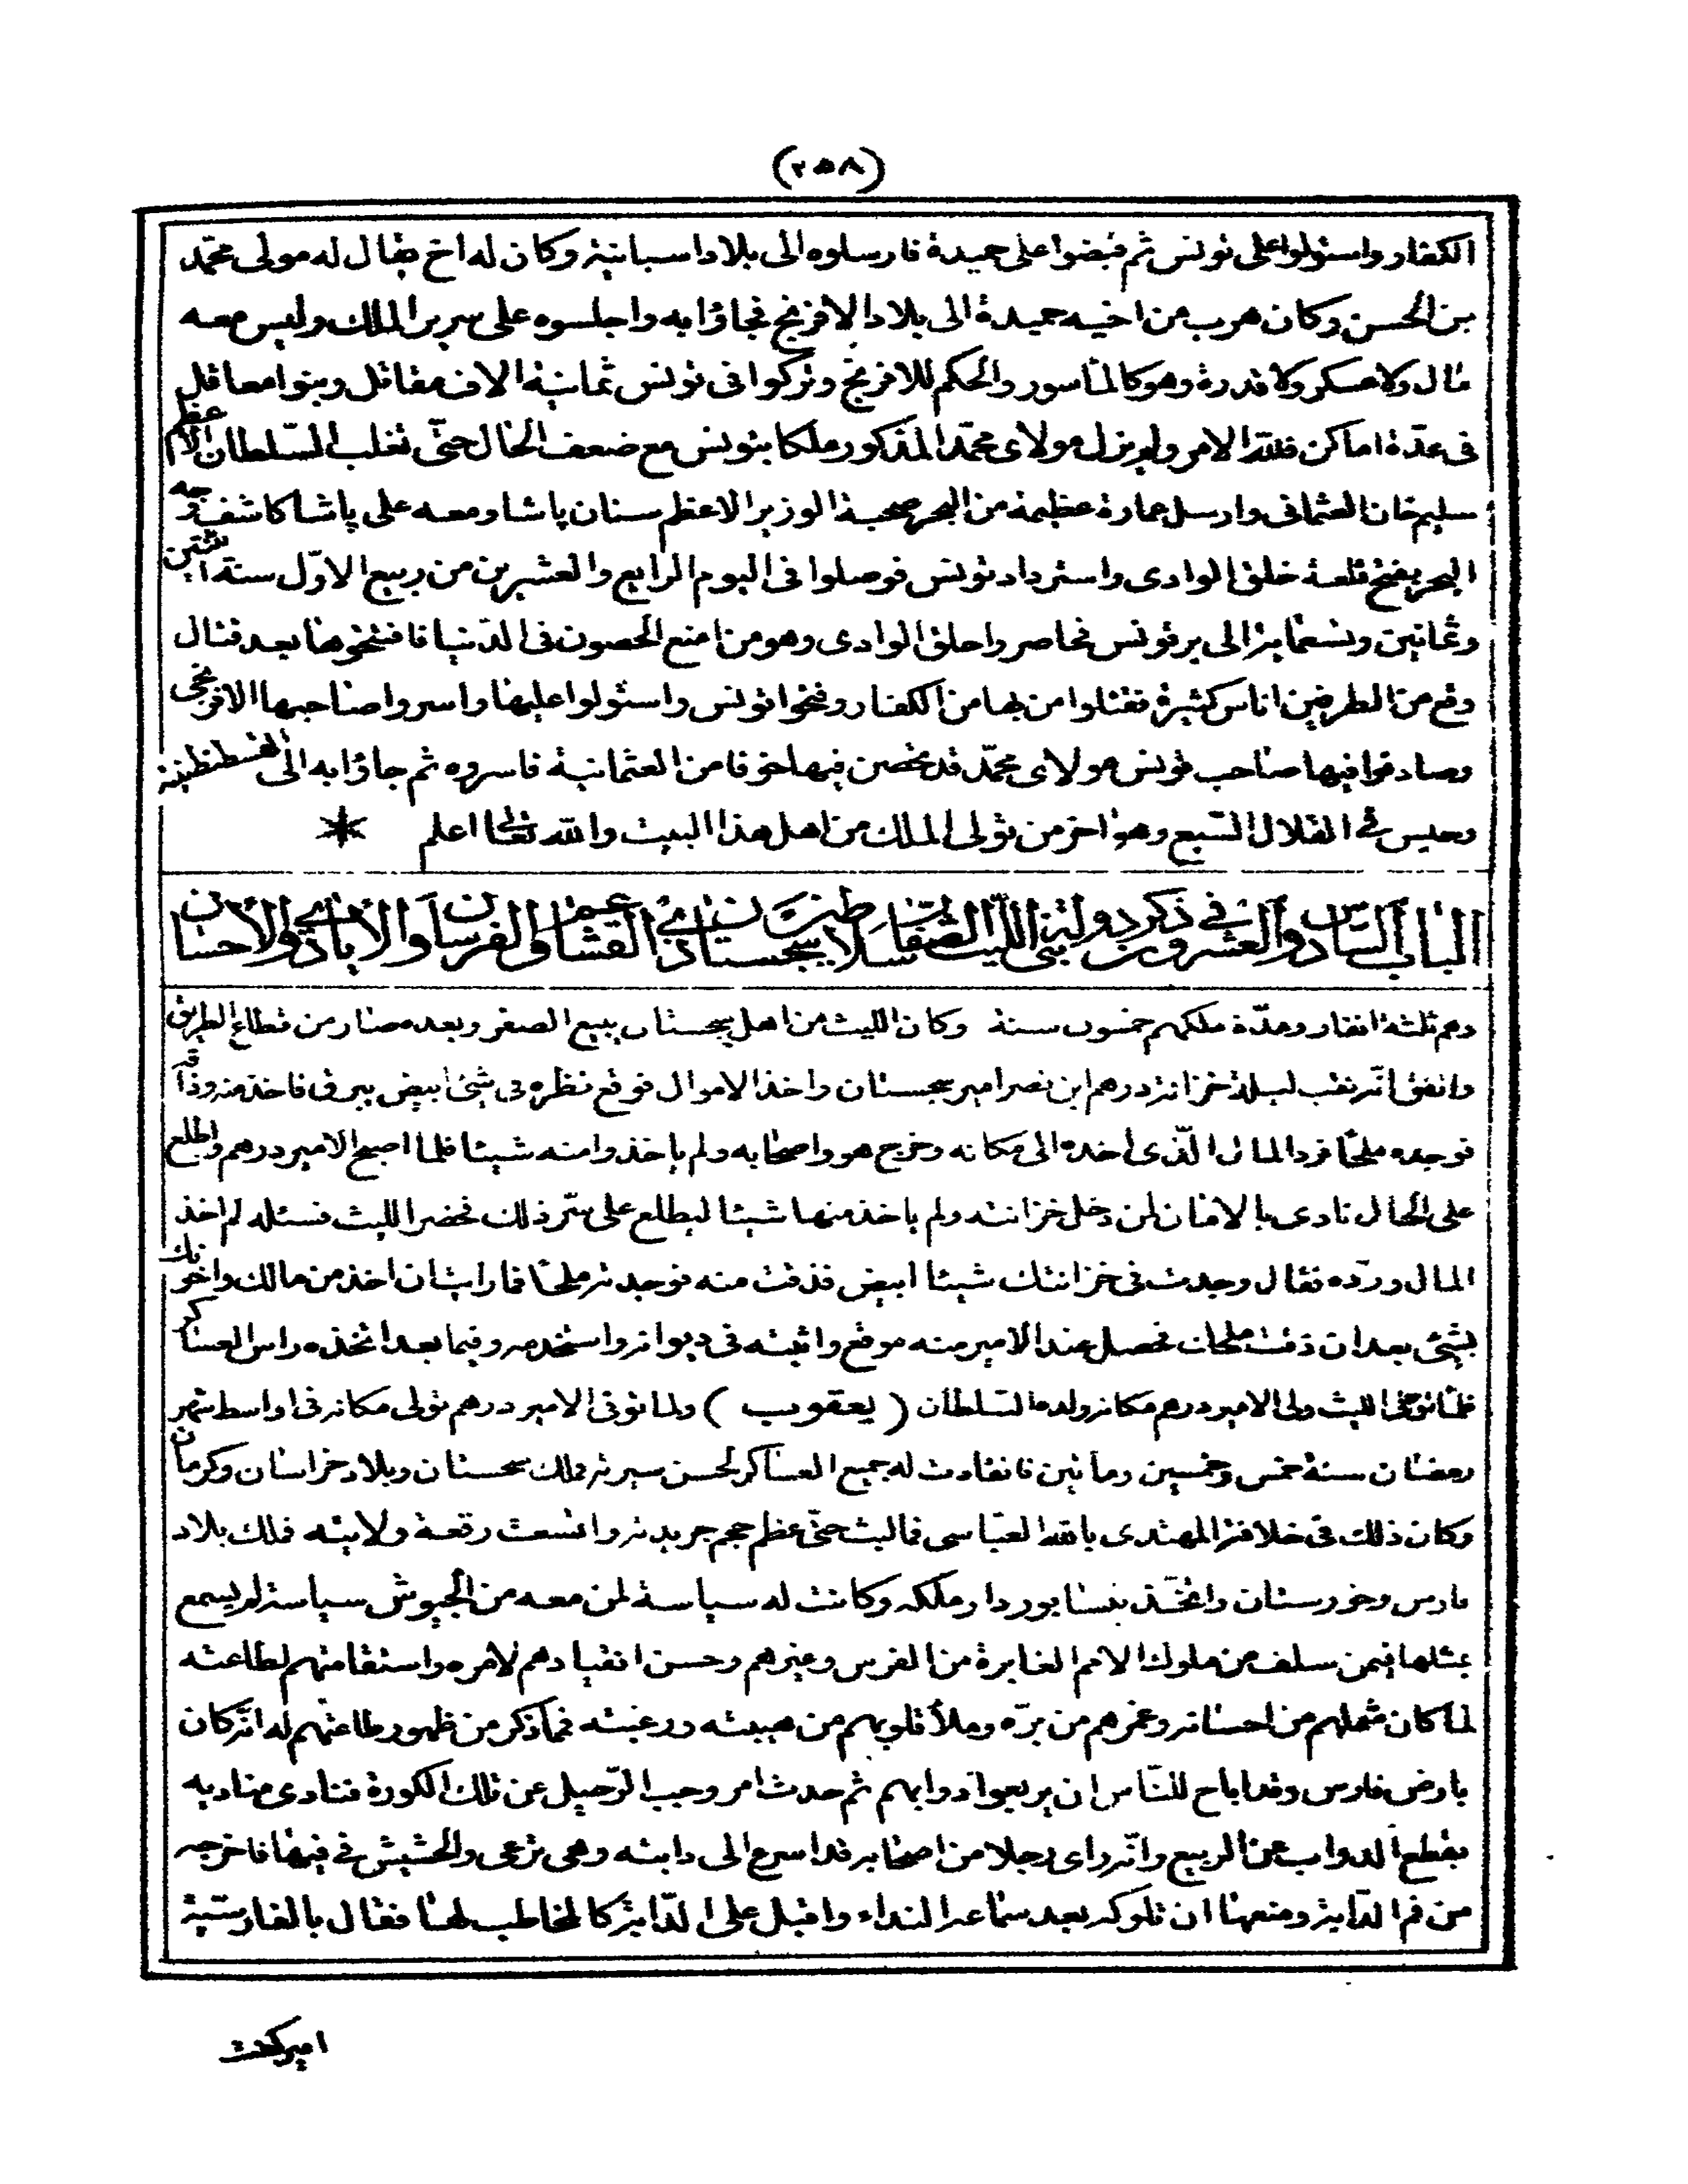 (٢٥٨)
الكفار واستولوا على تونس ثم قبضوا على حميدة فارسلوه الى بلاد اسبانية وكان له اخ يقال له مولى محمّد
بن الحسن وكان هرب من اخيه حميدة الى بلاد الافرنج فجاؤا به واجلسوه على سرير الملك وليس معه
مال ولا عسكر ولا قدرة وهو كالمأسور والحكم للافرنج وتركوا فى تونس ثمانية الاف مقاتل وبنوا معاقل
فى عدّة اماكن فلله الامر ولم يزل مولاى محمّد المذكور ملكا بتونس مع ضعف الحال حتّى تغلب السّلطان الاعظم
سليم خان العثمانى وارسل عمارة عظيمة من البحر صحبة الوزير الاعظم سنان پاشا ومعه على پاشا كاشف وجه
البحر بفتح قلعة خلق الوادى واسترداد تونس فوصلوا فى اليوم الرابع والعشرين من ربيع الاوّل سنة اثنتين
وثمانين وتسعمايه الى بر تونس فحاصروا حلق الوادى وهو من امنع الحصون فى الدّنيا فافتتحوها بعد قتال
وقع من الطرفين اناس كثيرة فقتلوا من بها من الكفار وفتحوا تونس واستولوا عليها واسروا صاحبها الافرنجى
وصادفوا فيها صاحب تونس مولاى محمّد قد تحصن فيها خوفا من العثمانية فاسروه ثم جاؤا به الى القسطنطينية
وحبس فى القلال السّبع وهو اخر من تولى الملك من اهل هذا البيت والله تعالى اعلم *
الباب السّادس والعشرون فى ذكر دولة بنى الليث الصّفار سلاطين سجستان ذى القشاعم والفرسان والأيادى والأحسان
وهم ثلثة انفار ومدّة ملكهم خمسون سنة وكان الليث من اهل سجستان يبيع الصفر وبعده صار من قطاع الطريق
واتفق انّه نقب ليلة خزانة درهم ابن نصر امير سجستان واخذ الاموال فوقع نظره فى شئ ابيض يبرق فاخذ منه وذاقه
فوجده ملحًا فرد المال الّذى اخذه الى مكانه وخرج هو واصحابه ولم ياخذوا منه شيئا فلما اصبح الامير درهم واطلع
على الحال نادى بالامان لمن دخل خزانته ولم ياخذ منها شيئا ليطلع على سّر ذلك فحضر الليث فسئله لم اخذ
المال وردّه فقال وجدت فى خزانتك شيئا ابيض فذقت منه فوجدته ملحًا فما رايت ان اخذ من مالك واخونك
بشئ بعد ان ذقت ملحك فحصل عند الامير منه موقع واثبته فى ديوانه واستخدمه وفيما بعد اتخذه راس العساكر
فلمّا توفى الليث ولى الامير درهم مكانه ولده السّلطان ( يعقوب ) ولما توفى الامير درهم تولى مكانه فى اواسط شهر
رمضان سنة خمس وخمسين ومأتين فانقادت له جميع العساكر لحسن سيرته فملك سجستان وبلاد خراسان وكرمان
وكان ذلك فى خلافة المهتدى بالله العبّاسى فما لبث حتّى عظم حجم جريدته واتسعت رقعة ولايته فملك بلاد
فارس وخوزستان واتخّذ نيسابور دار ملكه وكانت له سياسة لمن معه من الجيوش سياسة لم يسمع
بمثلها فيمن سلف من ملوك الامم الغابرة من الفرس وغيرهم وحسن انقيادهم لامره واستقامتهم لطاعته
لما كان شملهم من احسانه وغمرهم من برّه وملأ قلوبهم من هيبته ورغبته فما ذكر من ظهور طاعتهم له انّه كان
بارض فارس وقد اباح للنّاس ان يربعوا دوابهم ثم حدث امر وجب الرّحيل عن تلك الكورة فنادى مناديه
بقطع الدواب عن الربيع وانّه راى رجلا من اصحابه قد اسرع الى دابته وهى ترعى والحشيش فى فيها فاخرجه
من فم الدّابة ومنعها ان تلوكه بعد سماعه النداء واقبل على الدّابة كالمخاطب لها فقال بالفارسيّة
امير كفت